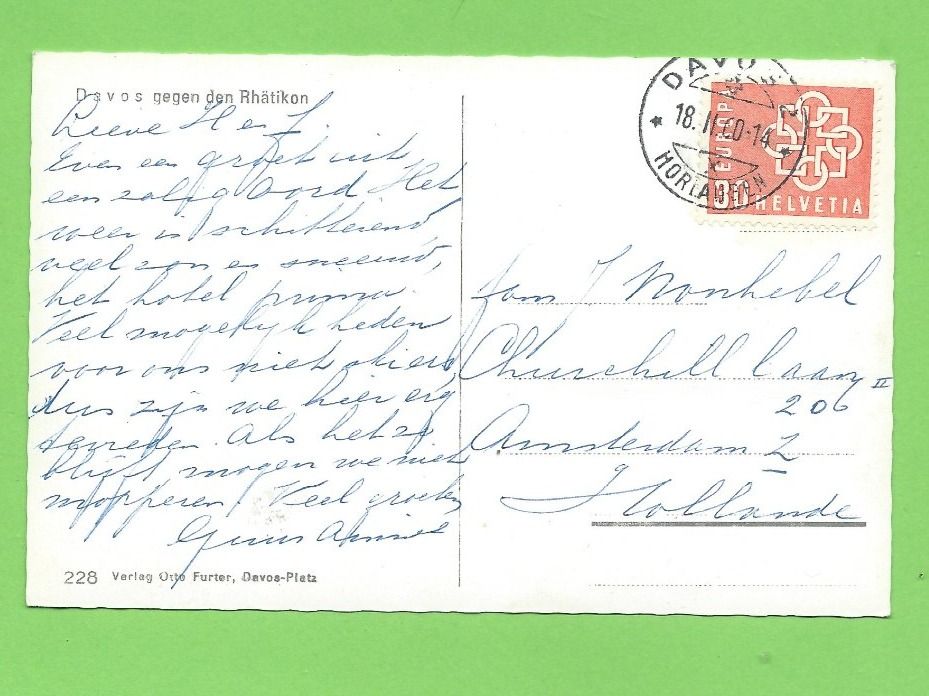 Davos gegen den Rhätikon
Lieve H en J.
Even een groet uit
een zalig oord Het
weer is schitterend,
veel zon en sneeuw,
het hotel prima.
Veel mogelijkheden
voor ons niet skiers,
dus zijn we hier erg
tevreden. Als het zo
blijft mogen we niet
mopperen. Veel groeten
Guus Annie
228 Verlag Otto Furter, Davos-Platz
DAVO 2
18.II.60-14
HORLAUBEN
EUROPA
30 HELVETIA
fam J Monhebel
Churchill laan
206 II
Amsterdam Z
Hollande